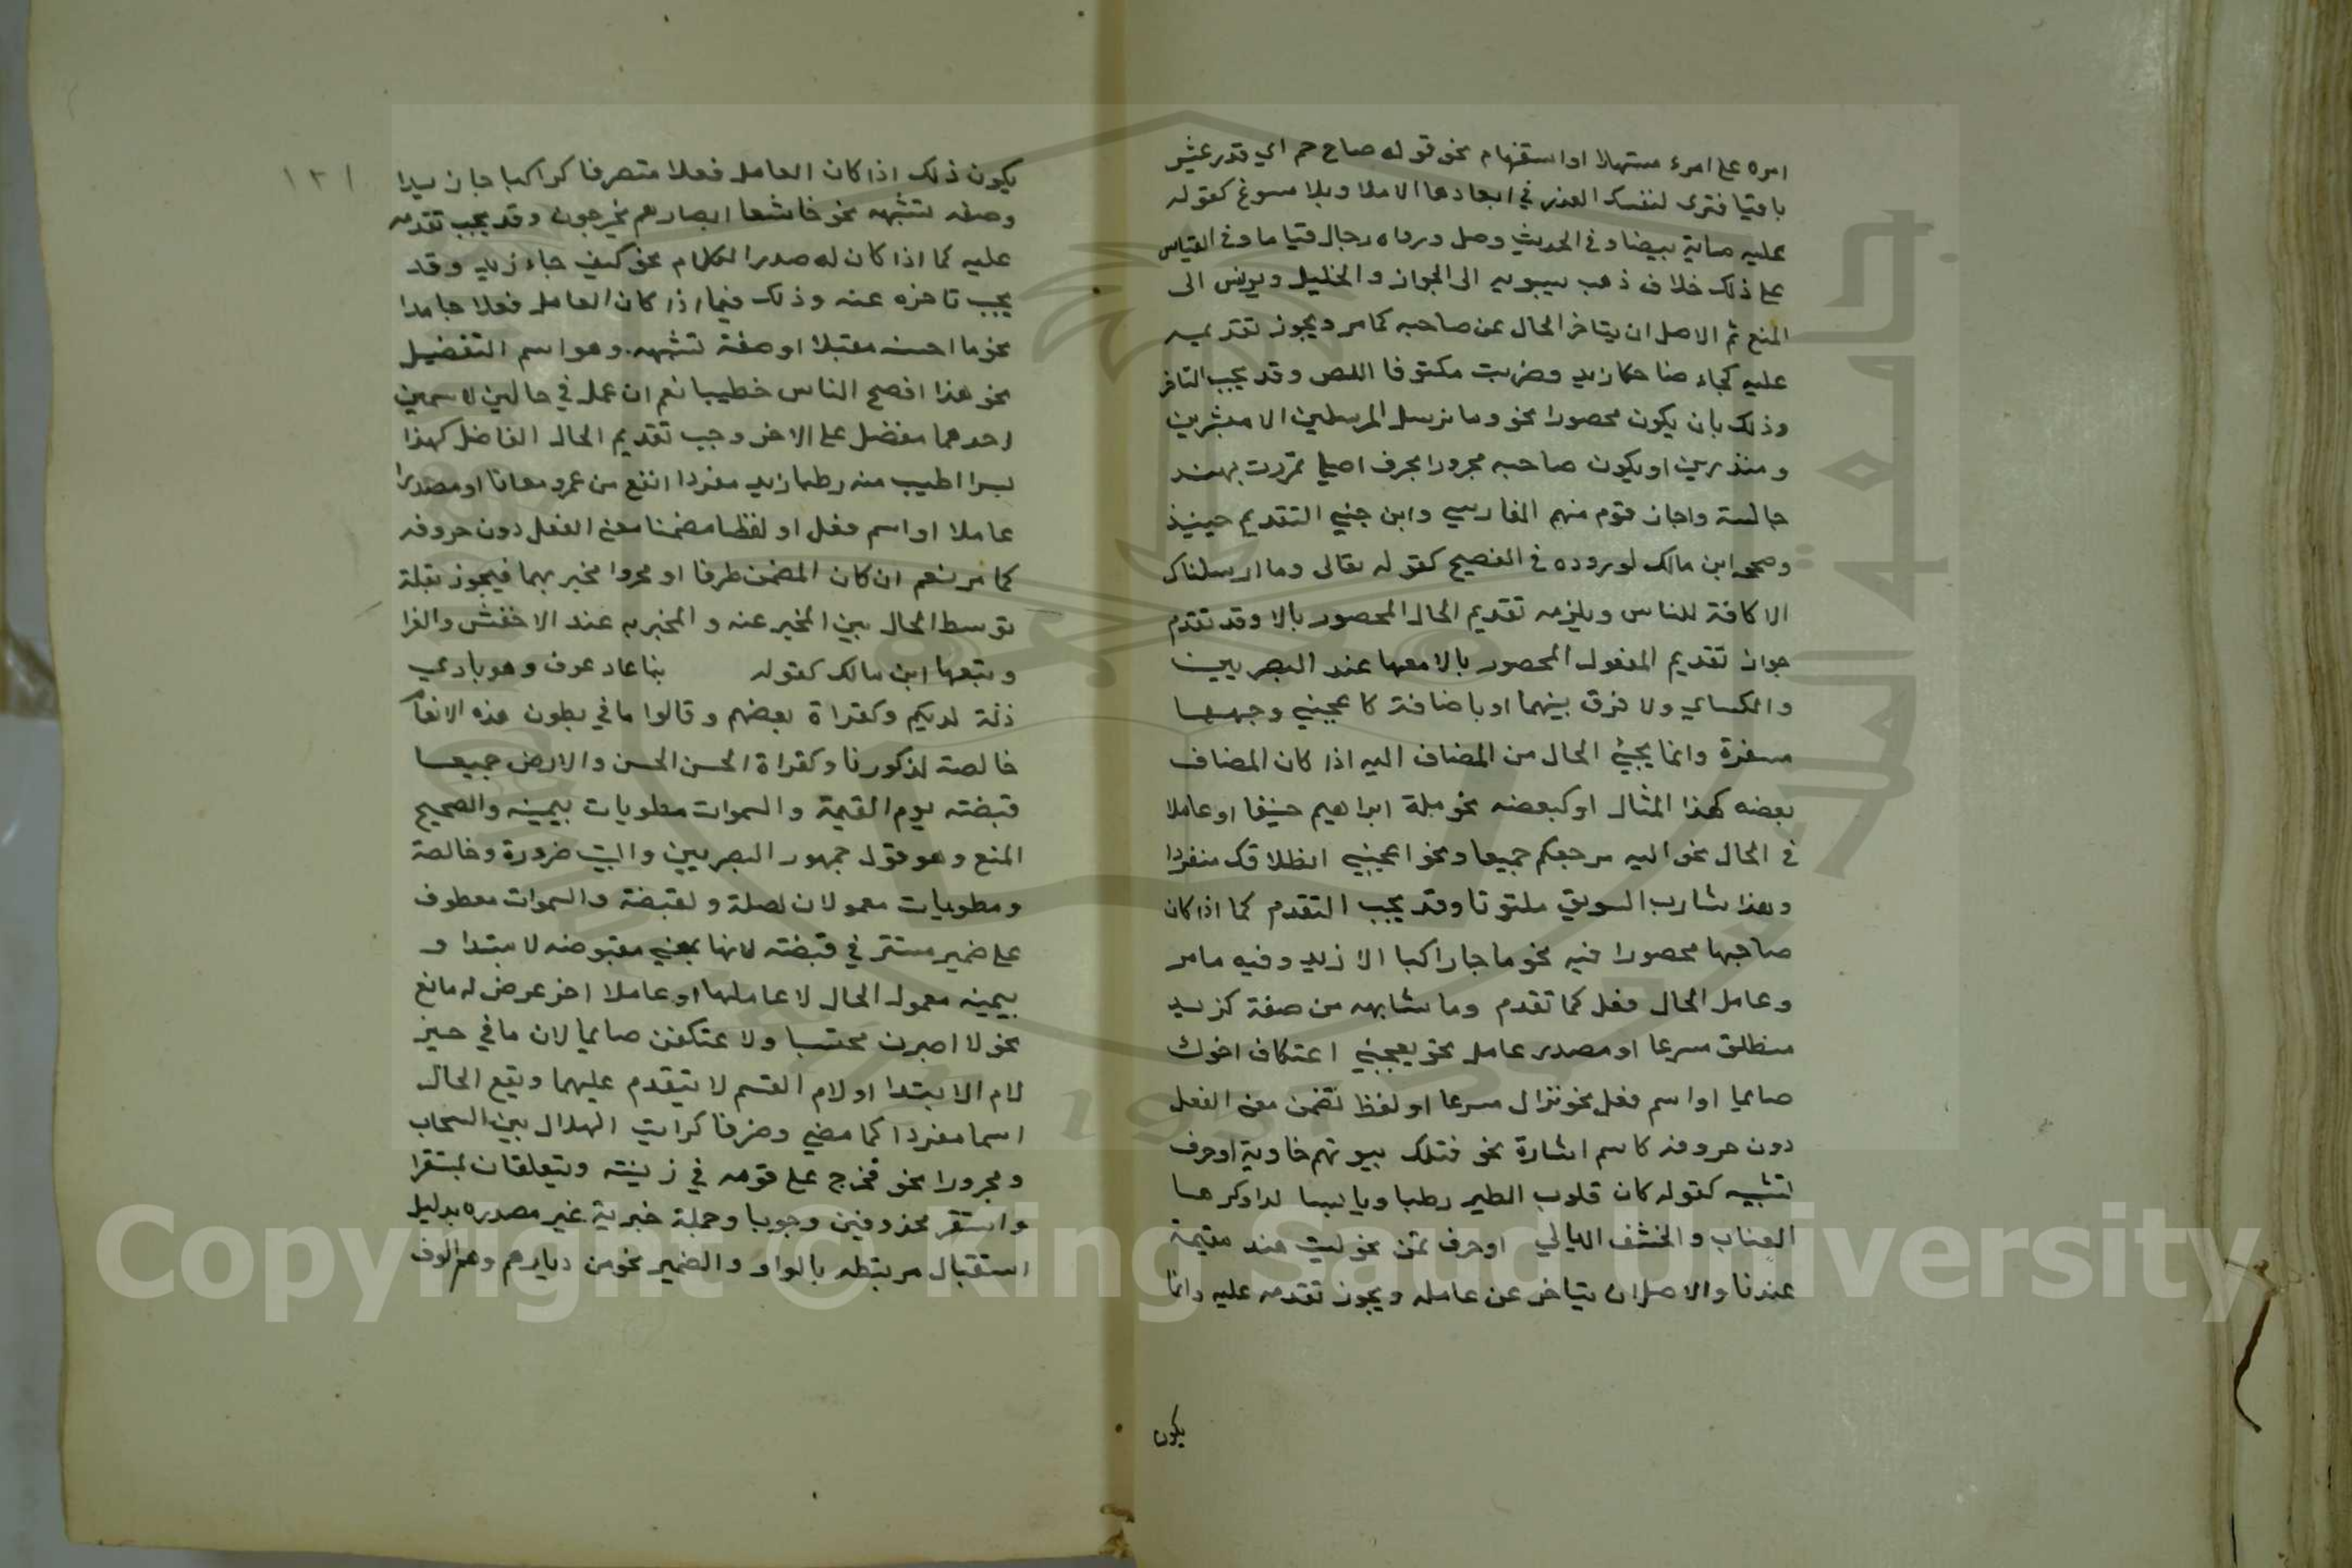 امره على امرء مستهلا او استفهام نحو قوله صاح حم اي قدر عيش
باقيا فترى لنفسك العذر في ابعادها الاملا وبلا مسوغ كقوله
عليه ماية بيضا وفي الحديث وصلى وراه رجال قياما وفي القياس
على ذلك خلاف ذهب سيبويه الى الجواز والخليل ويونس الى
المنع ثم الاصل ان يتاخر الحال عن صاحبه كما مر ويجوز تقديمه
عليه كجاء ضاحكا زيد وضربت مكتوفا اللص وقد يجب التاخر
وذلك بان يكون محصورا نحو وما نرسل المرسلين الا مبشرين
ومنذرين او يكون صاحبه مجرورا بحرف اصلي كمررت بهند
جالسة واجاز قوم منهم الفارسي وابن جني التقديم حينيذ
وصححه ابن مالك لوروده في الفصيح كقوله تعالى وما ارسلناك
الا كافة للناس ويلزمه تقديم الحال المحصور بالا وقد تقدم
جواز تقديم المفعول المحصور بالا معها عند البصريين
والكساي ولا فرق بينهما او باضافة كاعجبني وجهها
مسفرة وانما يجيئ الحال من المضاف اليه اذا كان المضاف
بعضه كهذا المثال او كبعضه نحو ملة ابراهيم حنيفا او عاملا
في الحال نحو اليه مرجعكم جميعا ونحو اعجبني انطلاقك منفردا
وهذا شارب السويق ملتوتا وقد يجب التقدم كما اذا كان
صاحبها محصورا فيه نحو ما جا راكبا الا زيد وفيه ما مر
وعامل الحال فعل كما تقدم وما شابهه من صفة كزيد
منطلق مسرعا او مصدر عامل نحو يعجبني اعتكاف اخوك
صايما او اسم فعل نحو نزال مسرعا او لفظ تضمن معنى الفعل
دون حروفه كاسم اشارة نحو فتلك بيوتهم خاوية او حرف
تشبيه كقوله كان قلوب الطير رطبا ويابسا لدا وكرها
العناب والخشف البالي او حرف تمن نحو ليت هند مقيمة
عندنا والاصل ان يتاخر عن عامله ويجوز تقدمه عليه وانما
يكون
١٢١
يكون ذلك اذا كان العامل فعلا متصرفا كراكبا جا زيد ا
وصفه تشبهه نحو خاشعا ابصارهم يخرجون وقد يجب تقدمه
عليه كما اذا كان له صدر الكلام نحو كيف جاء زيد وقد
يجب تاخره عنه وذلك فيما اذا كان العامل فعلا جامدا
نحو ما احسنه مقبلا او صفة تشبهه وهو اسم التفضيل
نحو هذا افصح الناس خطيبا نعم ان عمل في حالين لاسمين
احدهما مفضل على الاخر وجب تقديم الحال الفاضل كهذا
بسرا اطيب منه رطبا زيد مفردا انفع من عمرو معانا او مصدرا
عاملا او اسم فعل او لفظا مضمنا معنى الفعل دون حروفه
كما مر نعم ان كان المضمن ظرفا او مجرورا مخبر بهما فيجوز بقلة
توسط الحال بين المخبر عنه والمخبر به عند الاخفش والفرا
وتبعهما ابن مالك كقوله بنا عاد عوف وهو بادي
ذلة لديكم وكقراة بعضهم وقالوا ما في بطون هذه الانعام
خالصة لذكورنا وكقراة الحسن الحسن والارض جميعا
قبضته يوم القيمة والسموات مطويات بيمينه والصحيح
المنع وهو قول جمهور البصريين والبيت ضرورة وخالصة
ومطويات معمولان لصلة ولقبضة والسموات معطوف
على ضمير مستتر في قبضته لانها بمعنى مقبوضه لا مبتدا و
بيمينه معمول الحال لا عاملها او عاملا اخر عرض له مانع
نحو لا اصبرن محتسبا ولا عتكفن صايما لان ما في حيز
لام الابتدا او لام القسم لا يتقدم عليهما ويقع الحال
اسما مفردا كما مضي وضرفا كرايت الهلال بين السحاب
ومجرورا نحو فخرج على قومه في زينته ويتعلقان بمستقرا
واستقر محذوفين وجوبا وجملة خبرية غير مصدره بدليل
استقبال مرتبطه بالواو والضمير نحو من ديارهم وهم الوف
Copyright © King Saud University